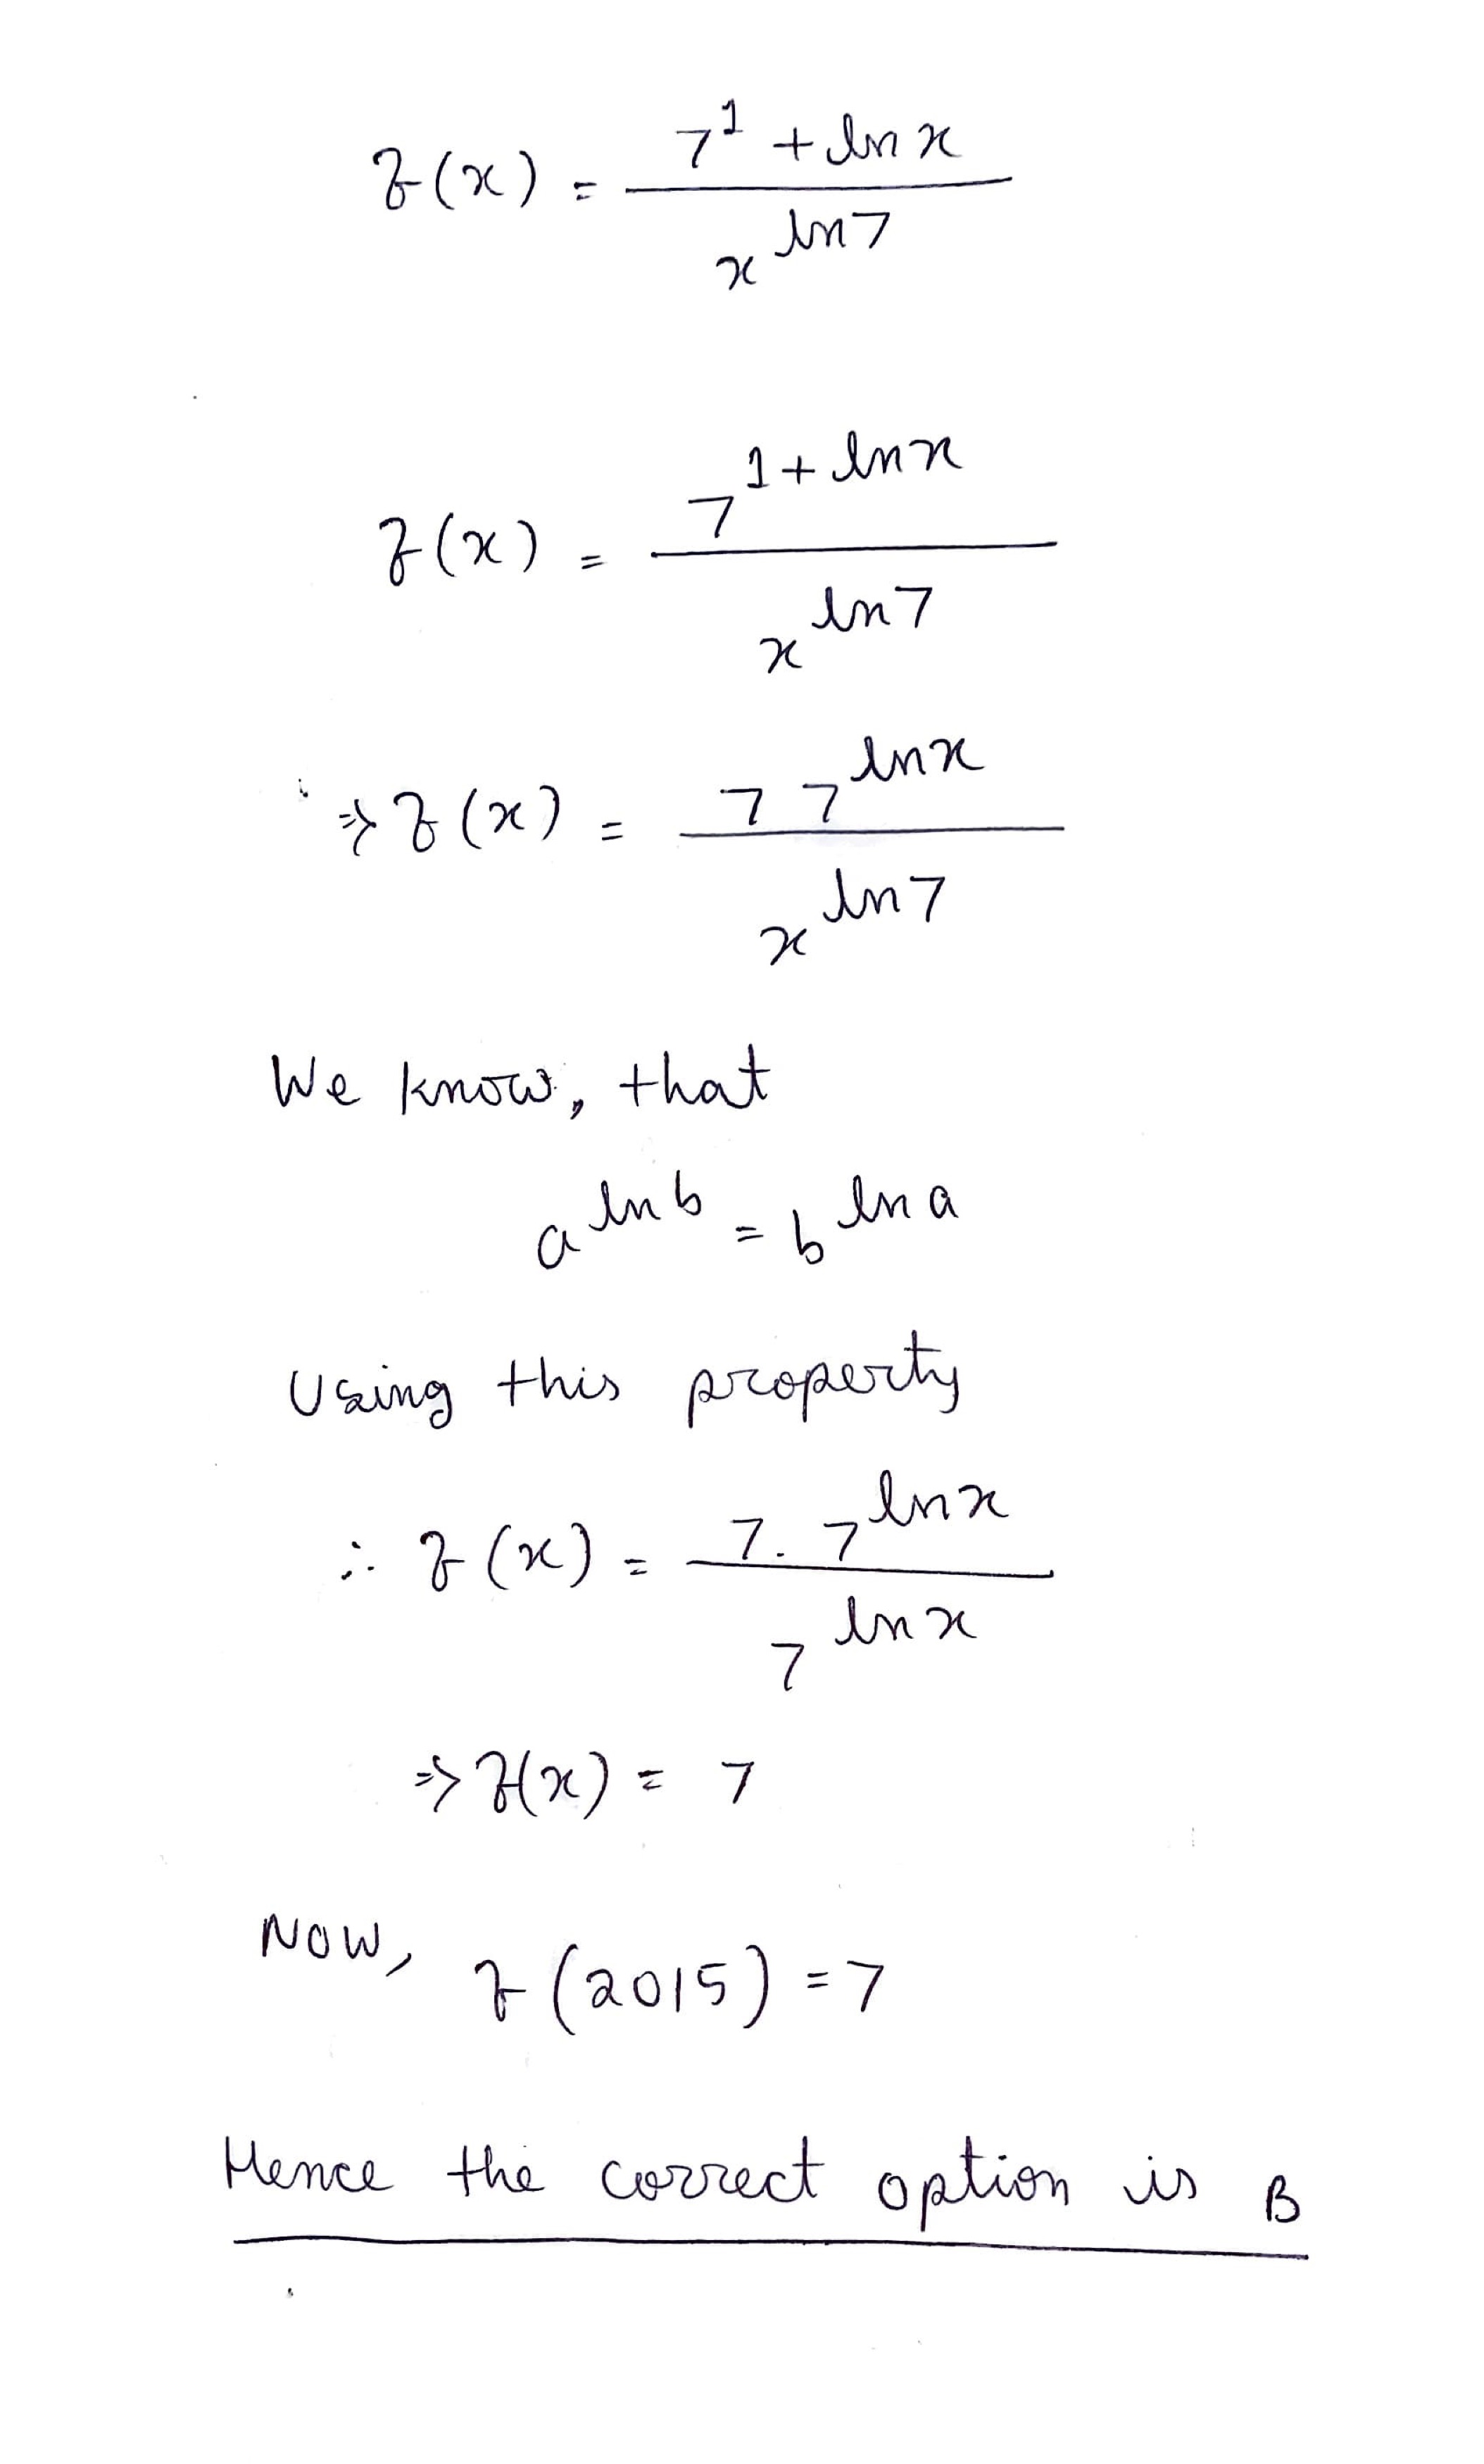 f(x) = (7^1 + ln x) / (x^ln 7)
f(x) = (7^(1 + ln x)) / (x^ln 7)
⇒ f(x) = (7 7^ln x) / (x^ln 7)
We know, that
a^ln b = b^ln a
Using this property
∴ f(x) = (7. 7^ln x) / (7^ln x)
⇒ f(x) = 7
Now, f(2015) = 7
Hence the correct option is B